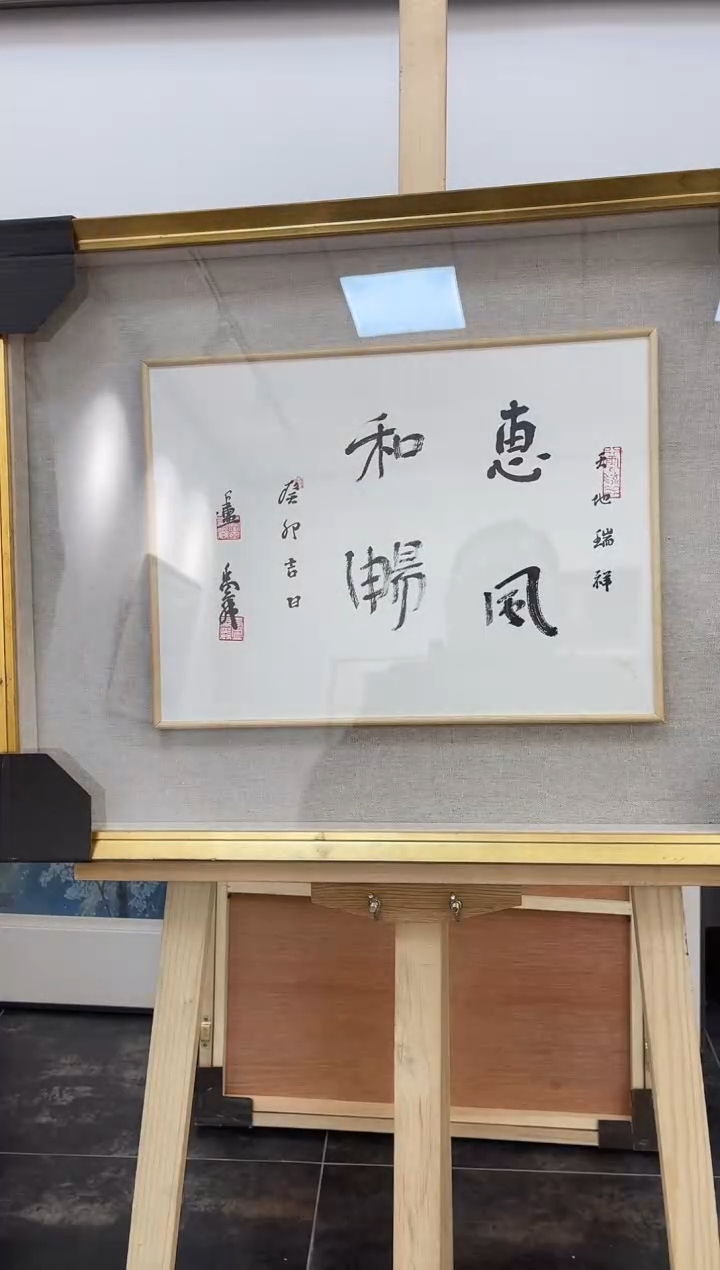 天地瑞祥
惠風
和暢
癸卯吉日